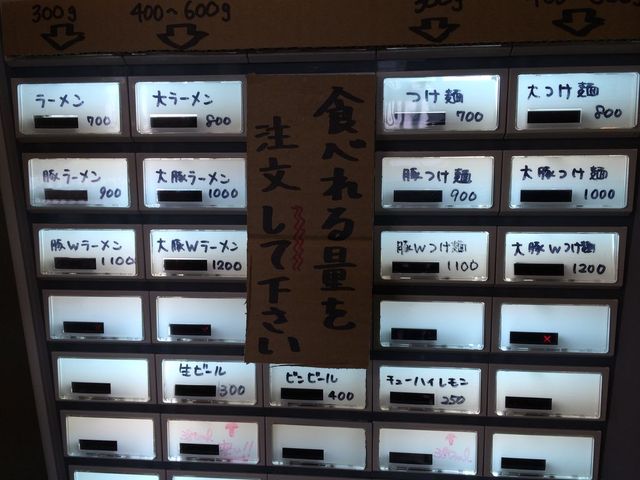 300g 400～600g 300g 400～600g
ラーメン 700
大ラーメン 800
つけ麺 700
大つけ麺 800
豚ラーメン 900
大豚ラーメン 1000
豚つけ麺 900
大豚つけ麺 1000
豚Wラーメン 1100
大豚Wラーメン 1200
豚Wつけ麺 1100
大豚Wつけ麺 1200
食べれる量を
注文して下さい
生ビール 300
ビンビール 400
チューハイレモン 250